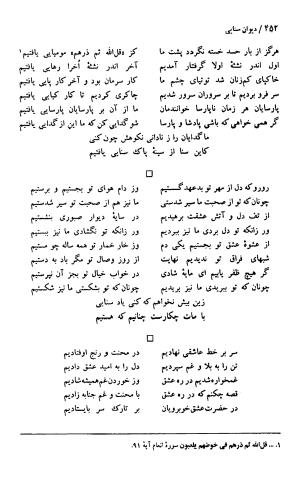 ۲۵۲ / دیوان سنایی
هرگز از بار حسد خسته نگردد پشت ما کز «قل‌الله ثم ذرهم» مومیایی یافتیم
اول اندر نشئهٔ اولا گرفتار آمدیم آخر اندر نشئهٔ اخرا رهایی یافتیم
خاکپای کم‌زنان شد توتیای چشم ما کار سرمان بود و آخر کار پایی یافتیم
سر فرو بردیم تا بر سروران سرور شدیم چاکری کردیم تا کار کیایی یافتیم
پارسایان هر زمان ناپارسا خوانندمان ما از آن بر پارسایان پارسایی یافتیم
گر همی خواهی که باشی پادشا و پارسا شو گدایی کن که ما این از گدایی یافتیم
ما گدایان را ز نادانی نکوهش چون کنی
کاین سنا از سینهٔ پاک سنایی یافتیم
رورو که دل از مهر تو بدعهد گسستیم وز دام هوای تو بجستیم و برستیم
چونان که تو از صحبت ما سیر شدستی ما نیز هم از صحبت تو سیر شدستیم
از تف دل و آتش عشقت برهیدیم در سایهٔ دیوار صبوری بنشستیم
ور زانکه تو دل بردی ما نیز ببردیم ور زانکه تو نگشادی ما نیز ببستیم
از عشوهٔ عشق تو بجستیم یکی دم وز خار خمار تو همه ساله چو مستیم
شبهای فراق تو ندیدیم نهایت از روز وصال تو مگر باد به دستیم
گر هیچ ظفر یابیم ای مایهٔ شادی در خواب خیال تو بجز آن نپرستیم
چونان که تو ببریدی ما نیز بریدیم چونان‌که تو بشکستی ما نیز شکستیم
زین بیش نخواهم که کنی یاد سنایی
با مات چکارست چنانیم که هستیم
سر بر خط عاشقی نهادیم در محنت و رنج اوفتادیم
تن را به بلا و غم سپردیم دل را به امید عشق دادیم
غمخواره شدیم در ره عشق وز خوردن غم همیشه شادیم
قصه چکنم که در ره عشق با محنت و غم جنابه زادیم
در حضرت عشق خوبرویان بر تارک سر بایستادیم
۱. ... قل‌الله ثم ذرهم فی خوضهم یلعبون سورهٔ انعام آیهٔ ۹۱.